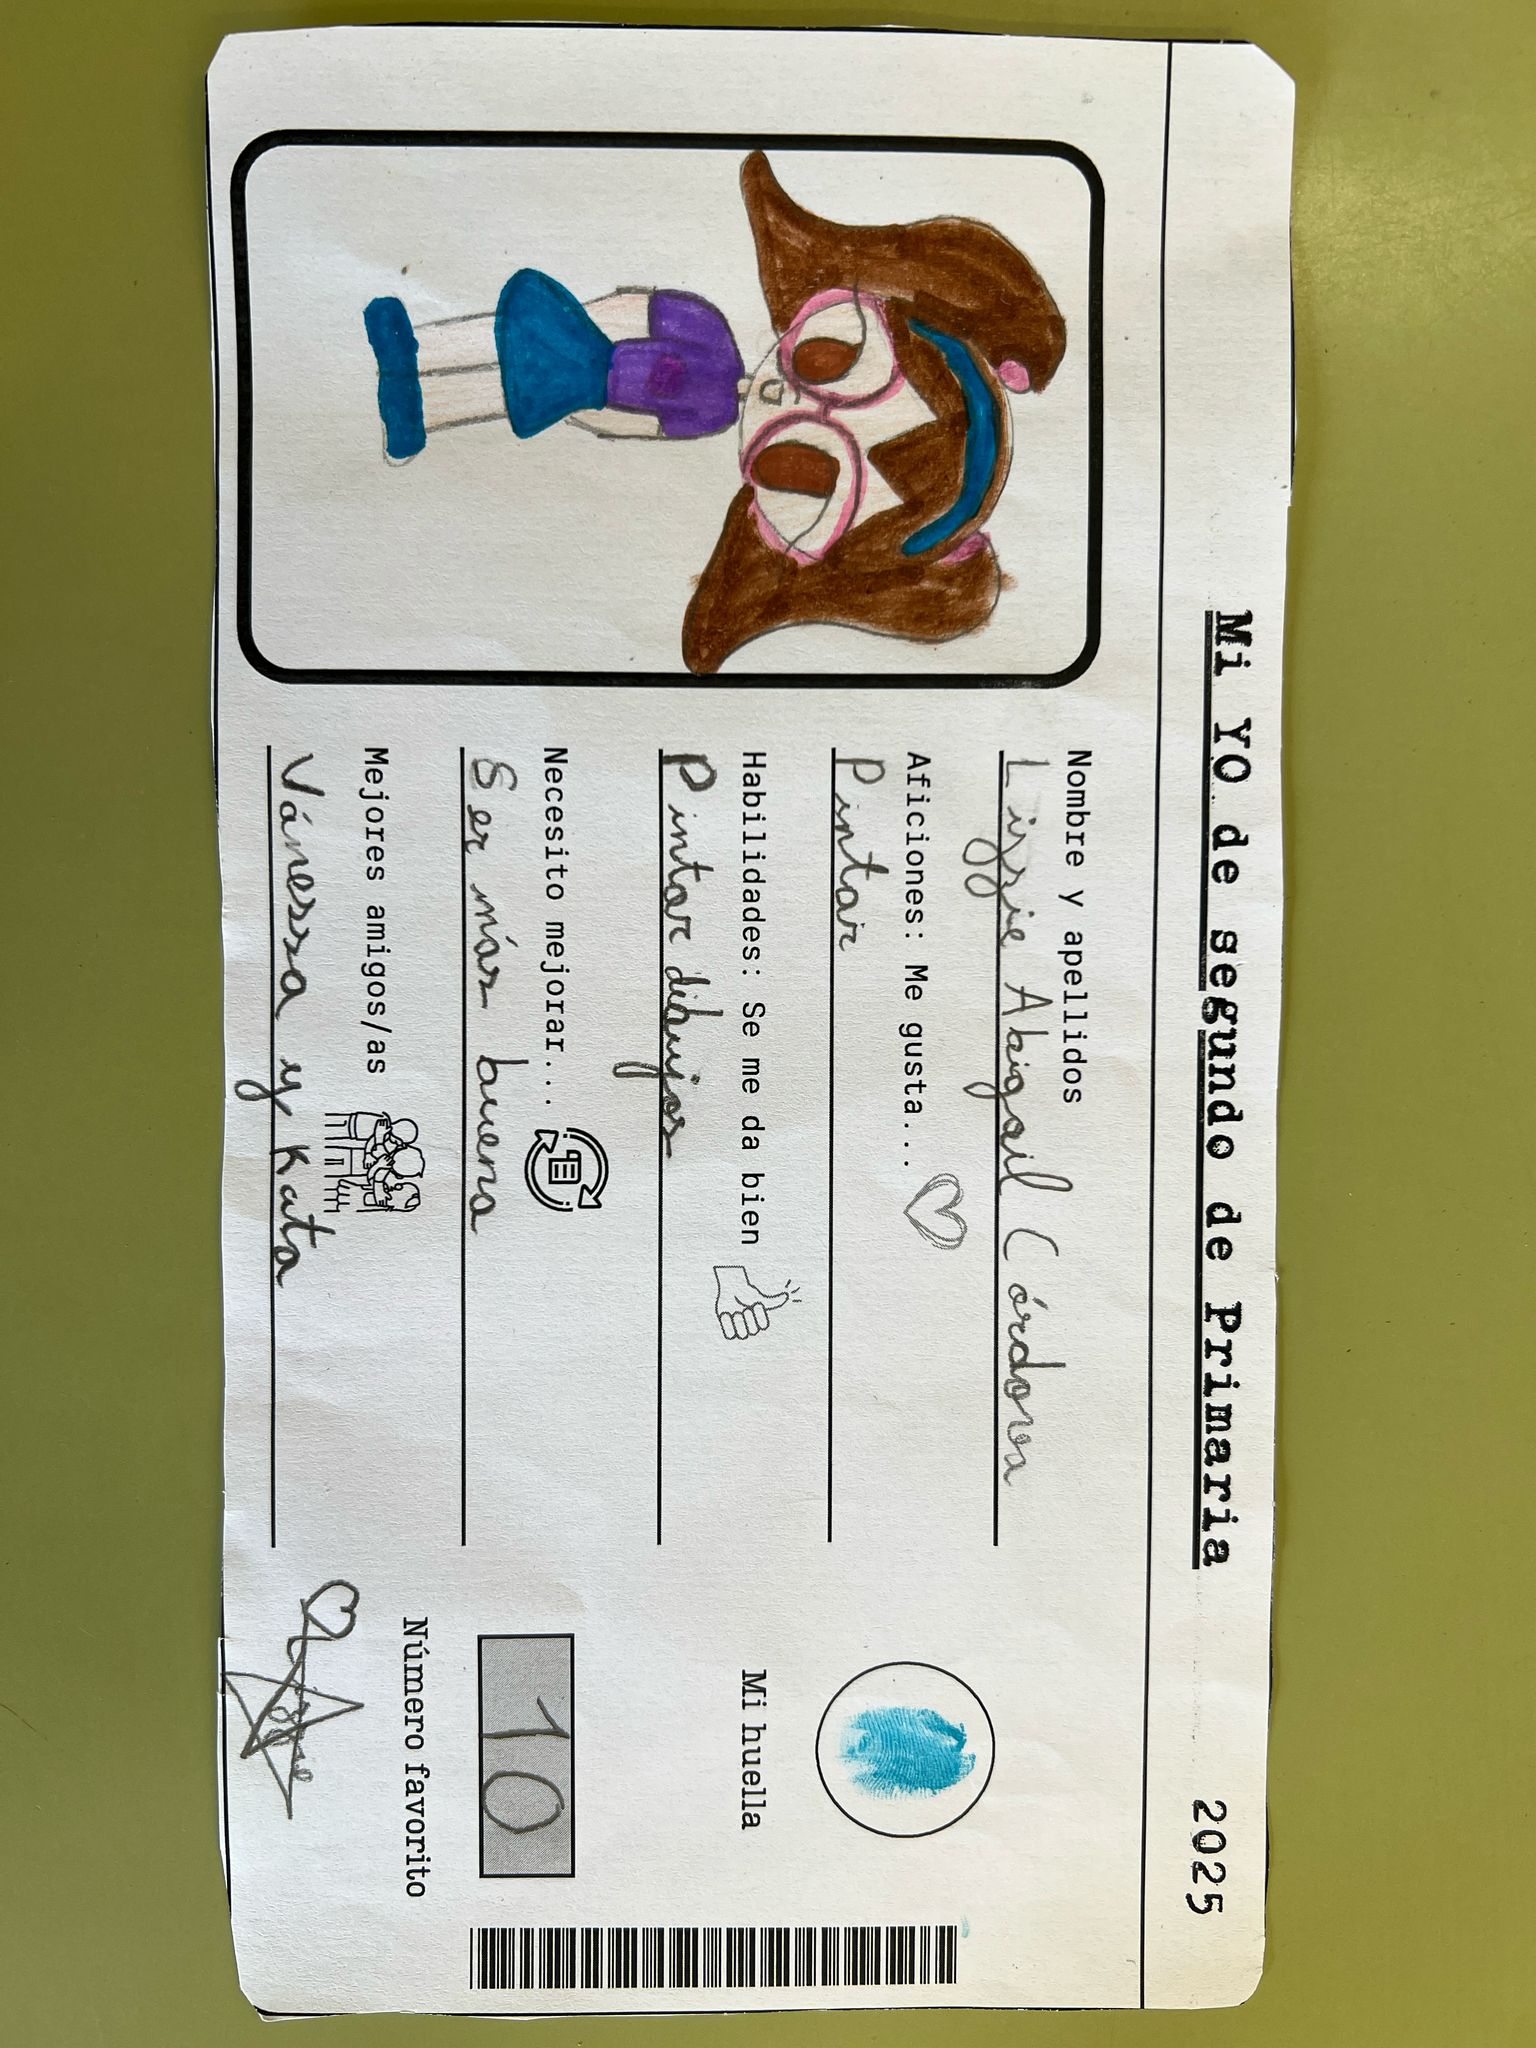 Mi YO de segundo de Primaria
2025
Nombre y apellidos
Lizzie Abigail Córdova
Aficiones: Me gusta...
Pintar
Habilidades: Se me da bien
Pintar dibujos
Necesito mejorar...
Ser más buena
Mejores amigos/as
Vánessa y Kata
Mi huella
10
Número favorito
Lizzie